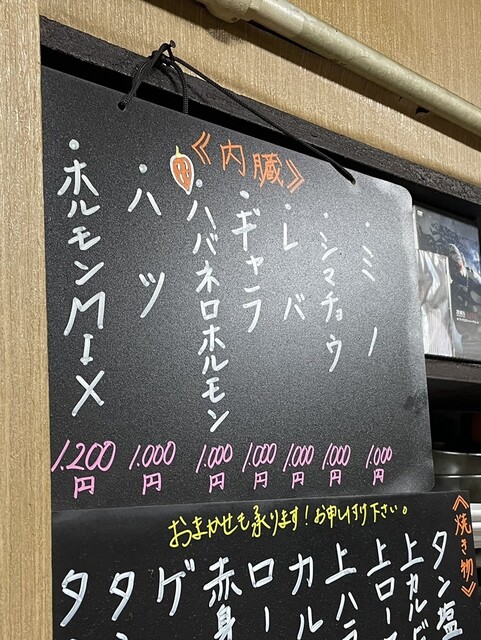 《内臓》
・ミノ
1.000円
・シマチョウ
1.000円
・レバ
1.000円
・ギャラ
1.000円
・ハバネロホルモン
1.000円
・ハツ
1.000円
・ホルモンMIX
1.200円
おまかせも承ります!お申し付け下さい。
《焼き物》
タン塩
上カルビ
上ロー
上ハラ
カル
ロー
赤身
ゲ
タ
タ